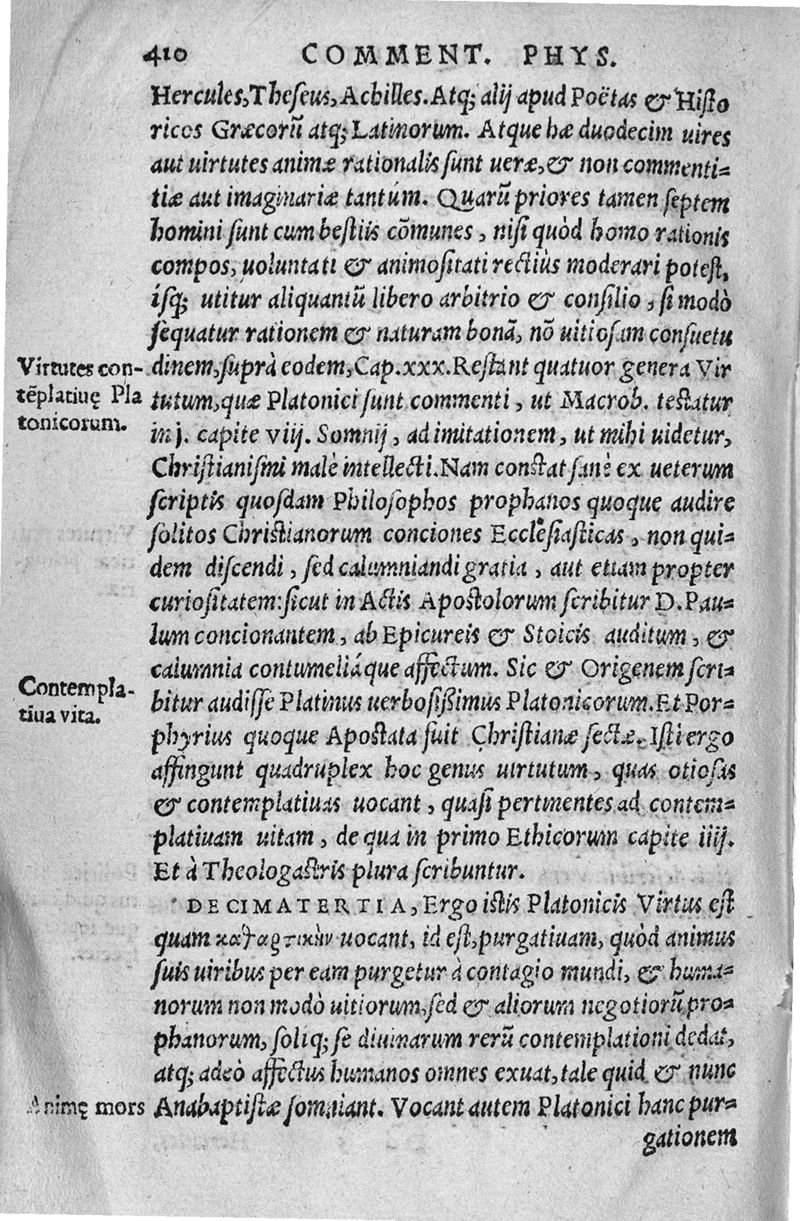 410 COMMENT. PHYS.
Hercules, Theseus, Achilles. Atq; alij apud Poëtas & Histo
ricos Græcorũ atq; Latinorum. Atque hæ duodecim uires
aut uirtutes animæ rationalis sunt ueræ, & non commenti=
tiæ aut imaginariæ tantúm. Quarũ priores tamen septem
homini sunt cum bestiis cõmunes, nisi quòd homo rationis
compos, uoluntati & animositati rectiùs moderari potest,
isq; utitur aliquantũ libero arbitrio & consilio, si modò
sequatur rationem & naturam bonã, nõ uitiosam consuetu
Virtutes con-
tẽplatiuę Pla
tonicorum.
dinem, suprà eodem, Cap. xxx. Restant quatuor genera Vir
tutum, quæ Platonici sunt commenti, ut Macrob. testatur
in j. capite viij. Somnij, ad imitationem, ut mihi uidetur,
Christianismi malè intellecti. Nam constat sanè ex ueterum
scriptis quosdam Philosophos prophanos quoque audire
solitos Christianorum conciones Ecclesiasticas, non qui=
dem discendi, sed calumniandi gratia, aut etiam propter
curiositatem: sicut in Actis Apostolorum scribitur D. Pau=
lum concionantem, ab Epicureis & Stoicis auditum, &
calumnia contumeliáque affectum. Sic & Origenem scri=
Contempla-
tiua vita.
bitur audisse Platinus uerbosißimus Platonicorum. Et Por=
phyrius quoque Apostata fuit Christianæ sectæ. Isti ergo
affingunt quadruplex hoc genus uirtutum, quas otiosas
& contemplatiuas uocant, quasi pertinentes ad contem=
platiuam uitam, de qua in primo Ethicorum capite iiij.
Et à Theologastris plura scribuntur.
DECIMATERTIA, Ergo istis Platonicis Virtus est
quam καθαρτικὴν uocant, id est, purgatiuam, quòd animus
suis uiribus per eam purgetur à contagio mundi, & huma=
norum non modò uitiorum, sed & aliorum negotiorũ pro=
phanorum, soliq; se diuinarum rerũ contemplationi dedat,
atq; adeò affectus humanos omnes exuat, tale quid & nunc
Animę mors
Anabaptistæ somniant. Vocant autem Platonici hanc pur=
gationem